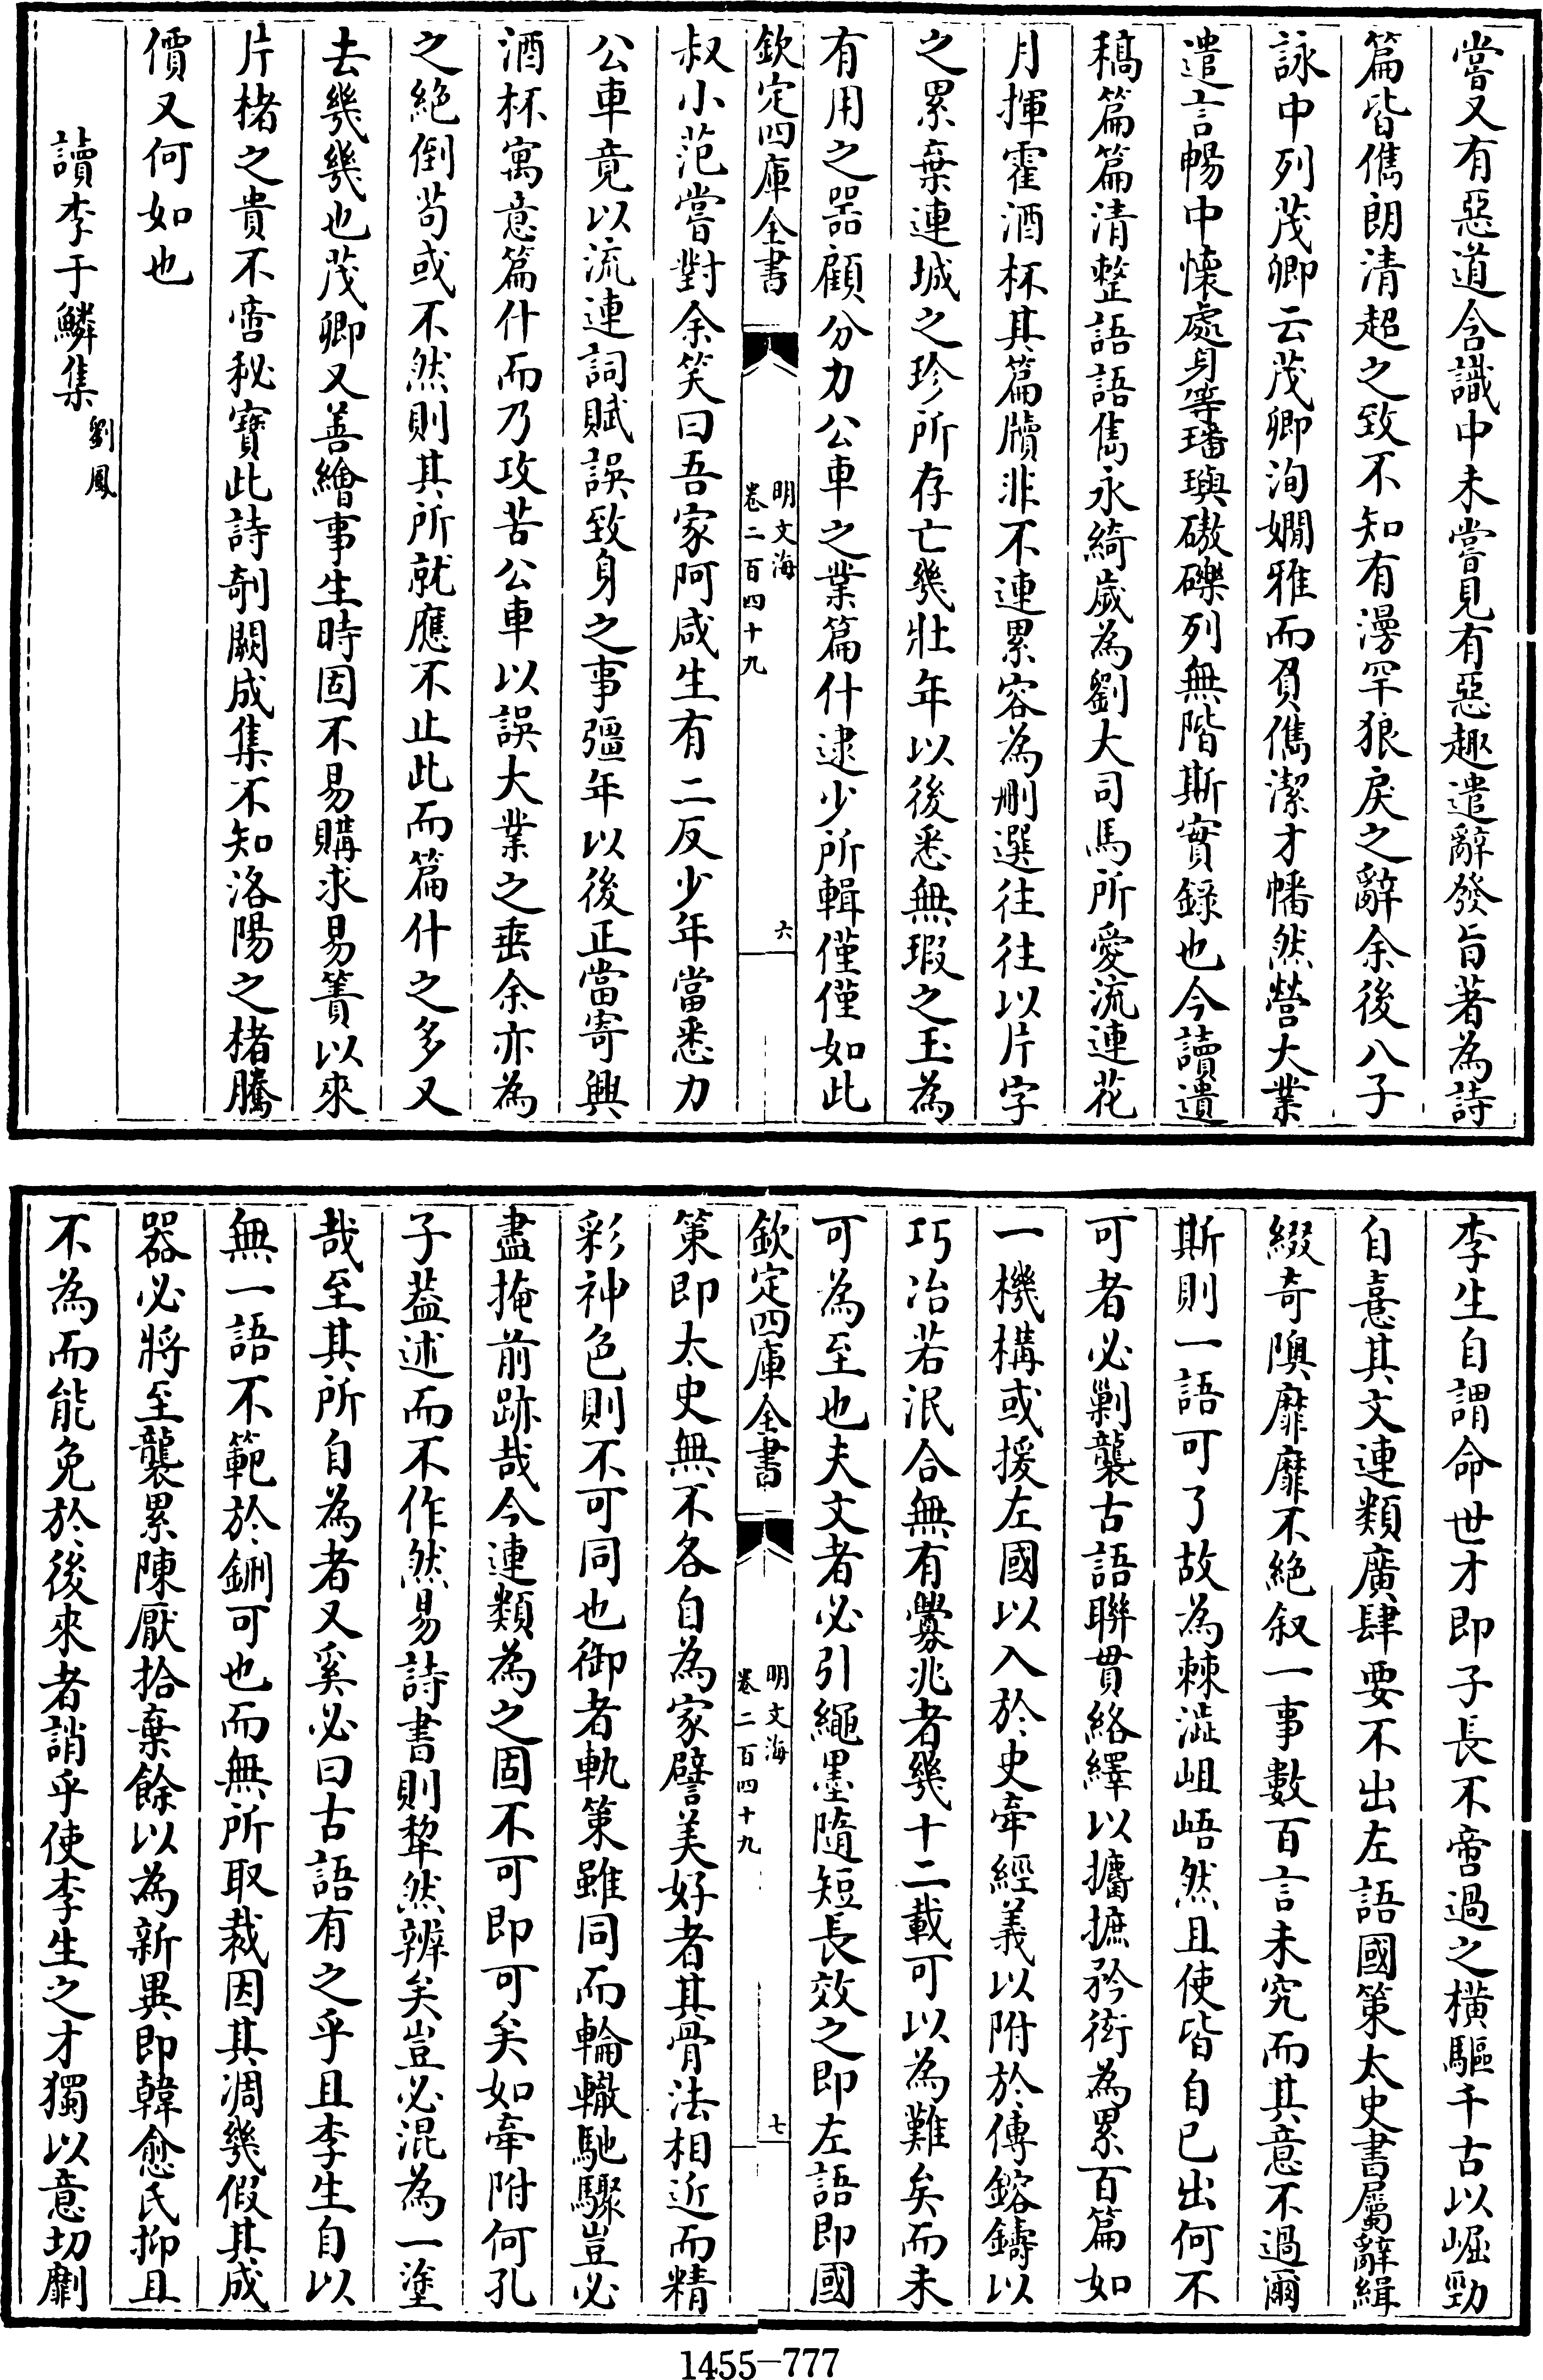 嘗又有惡道含識中未嘗見有惡趣遣辭發旨著為詩
篇皆儁朗清超之致不知有漫罕狼戾之辭余後八子
詠中列茂卿云茂卿洵嫺雅而負儁潔才幡然營大業
遣言暢中懷處身等璠璵磝礫列無階斯實録也今讀遺
稿篇篇清整語語雋永綺歲為劉大司馬所愛流連花
月揮霍酒杯其篇牘非不連累容為刪選往往以片字
之累棄連城之珍所存亡幾壯年以後悉無瑕之玉為
有用之器顧分力公車之業篇什逮少所輯僅僅如此
欽定四庫全書
明文海
卷二百四十九
六
叔小范嘗對余笑曰吾家阿咸生有二反少年當悉力
公車竟以流連詞賦誤致身之事彊年以後正當寄興
酒杯寓意篇什而乃攻苦公車以誤大業之垂余亦為
之絶倒苟或不然則其所就應不止此而篇什之多又
去幾幾也茂卿又善繪事生時固不易購求易簀以來
片楮之貴不啻秘寶此詩剞劂成集不知洛陽之楮騰
價又何如也
讀李于鱗集 劉鳳
李生自謂命世才即子長不啻過之橫驅千古以崛勁
自憙其文連類廣肆要不出左語國策太史書屬辭緝
綴奇隩靡靡不絶叙一事數百言未究而其意不過爾
斯則一語可了故為棘澁岨峿然且使皆自已出何不
可者必剿襲古語聯貫絡繹以攟摭矜衒為累百篇如
一機構或援左國以入於史牽經義以附於傳鎔鑄以
巧冶若泯合無有釁兆者幾十二載可以為難矣而未
可為至也夫文者必引繩墨隨短長效之即左語即國
欽定四庫全書
明文海
卷二百四十九
七
策即太史無不各自為家譬美好者其骨法相近而精
彩神色則不可同也御者軌策雖同而輪轍馳驟豈必
盡掩前跡哉今連類為之固不可即可矣如牽附何孔
子葢述而不作然易詩書則犂然辨矣豈必混為一塗
哉至其所自為者又奚必曰古語有之乎且李生自以
無一語不範於鉶可也而無所取裁因其凋幾假其成
器必將至襲累陳厭拾棄餘以為新異即韓愈氏抑且
不為而能免於後來者誚乎使李生之才獨以意切劘
1455-777